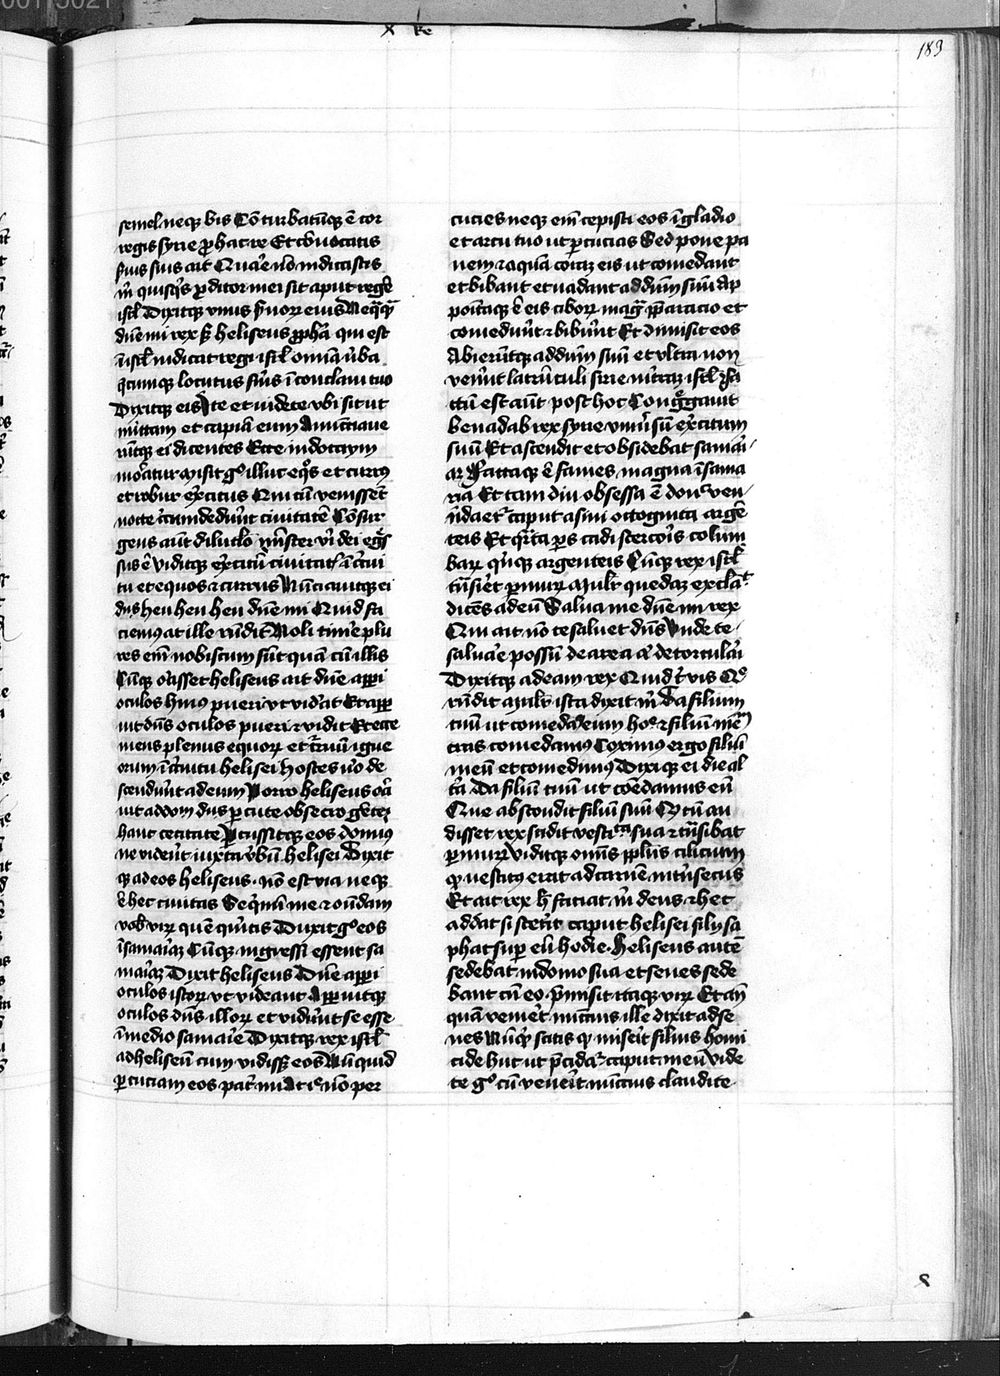 X Re
183
semel neqz bis Cō turbatūqz ē cor
regis syrie ꝓ hac re Et cōvocatis
ſuis suis ait Quare nō indicastis
m̄ quisq̄s ꝓditor mei sit aput regē
isrl̄ Dixitqz vnus s̄uoꝝ eius Neq̄q̄
dn̄e mi rex sꝫ heliseus ꝓph̄a qui est
ī isrl̄ indicat regi isrl̄ omīa v̄ba
q̄cumqz locutus fūis ī conclaui tuo
Dixitqz eis Ite et uidete vbi sit ut
mittam et capiā eum Annūctiaue
rūtqz ei dicentes Ecce in dotaym
mōatur Misit gͦ illuc eq̄os et currus
et robur ex̄citus Qui cū venissēt
nocte circumdedūt ciuitatē Cōsur
gens aūt diluclo mīster v̄i dei eḡs
sus ē viditqz ex̄citū ciuitatꝭ ī c̄cui
tu et equos ⁊ currus Nūciauitqz ei
dn̄s heu heu heu dn̄e mi Quid fa
ciemus at ille rn̄dit Noli time plu
res em̄ nobiscum sūt quā cū illis
Cūqz orasset heliseus ait dn̄e apꝑi
oculos huius pueri vt vid̄at Et apꝑ
uit dn̄s oculos pueri ⁊ vidit Et ecce
mens plenus equoꝝ et c̄ruū igne
orum ī c̄cuitu helisei Hostes uͦo de
scendūt ad eum Porro heliseus ora
uit ad dom dn̄s ꝑcute obsecro gētez
hanc cecitate Ꝑcussitqz eos domīus
ne videnīt iuxta v̄bū helisei Dixit
qz ad eos heliseus. nō est via neqz
ē hec ciuitas Seq̄mī me ⁊ oūdam
vob̄ viꝝ quē quītis Duxit gͦ eos
ī samaīaꝫ Cūqz ingressi essent sa
maīaꝫ Dixit heliseus Dn̄e apꝑi
oculos istoꝝ vt videant Apꝑuitqz
oculos dn̄s illoꝝ et vidūt se esse
ī medio samaīe Dixitqz rex isrl̄
ad heliseū cum vidisꝫ eos Nūquid
ꝑcuciam eos pat̄ mi At iͨ nō per
cucies neqz em̄ cepisti eos ī gladio
et arcu tuo ut ꝑcucias Sed pone pa
nem ⁊ aquā coraꝫ eis ut comedant
et bibant et uadant ad dn̄m suū Ap
poitaqz ē eis ciboꝝ maḡ p̄paracio et
comedūt ⁊ bibūt Et dimisit eos
Abierūtqz ad dn̄m suū et vltra non
venūt latrūculi sirie ī t̄raꝫ isrl̄ ⁊ fa
ctū est aūt post hoc Cong̈gauit
benadab rex syrie vniūsū ex̄citum
suū Et ascendit et obsidebat samai
aꝝ Factaqz ē fames magna ī sama
ria Et tam diu obsessa ē donͨ ven
ūdaet̄ caput asini octoginta argē
teis Et qr̄ta ꝑs cadi stercōis colum
baꝝ qn̄qz argenteis Cūqz rex isrl̄
tn̄siēt ꝑ muꝝ mulr̄ quedaꝫ exclāt
dicēs ad eū Salua me dn̄e mi rex
Qui ait nō te saluet dn̄s Vnde te
saluare possū de area ul̄ de torculāi
Dixitqz ad eam rex Quid t̄ vis Q̄e
rn̄dit mulr̄ ista dixit m̄ Da filium
tuū ut comedaꝫ eum hoͩ ⁊ filiū meū
cras comedamꝰ Coximꝰ ergo filiū
meū et comedimꝰ Dixiqz ei die al
ta Da filiū tuū ut comēdamus eū
Que abscondit filiū suū Qd̄ cū au
disset rex scidit vestīta sua ⁊ tn̄sibat
ꝑ muꝝ Viditqz omīs ppl̄us cilicium
qͦ uestitꝰ erat ad carnē intn̄secus
Et ait rex hͨ faciat m̄ deus ⁊ hec
addat si stetit̄ caput helisei filij sa
phat suꝑ eū hodie. Heliseus autē
sedebat in domo sua et senes sede
bant cū eo p̄misit itaqz viꝝ Et an̄
quā veniēt nūcius ille dixit ad se
nes Nūq̄ scitis ꝙ miserit filius homi
cide huc ut p̄cidaꝭ caput meū Vide
te gͦ cū venēit nūcius claudite
8